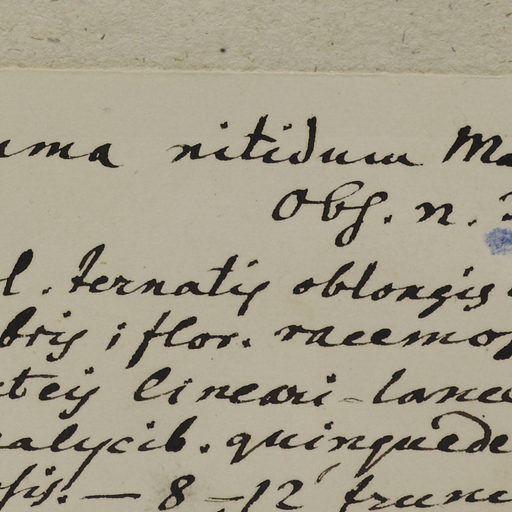 uma nitidum Ma
Obs. n.
l. ternatis oblongis
bris; flor. racemos
cteis lineari-lance
calycib. quinquede
sis. — 8-12 frune